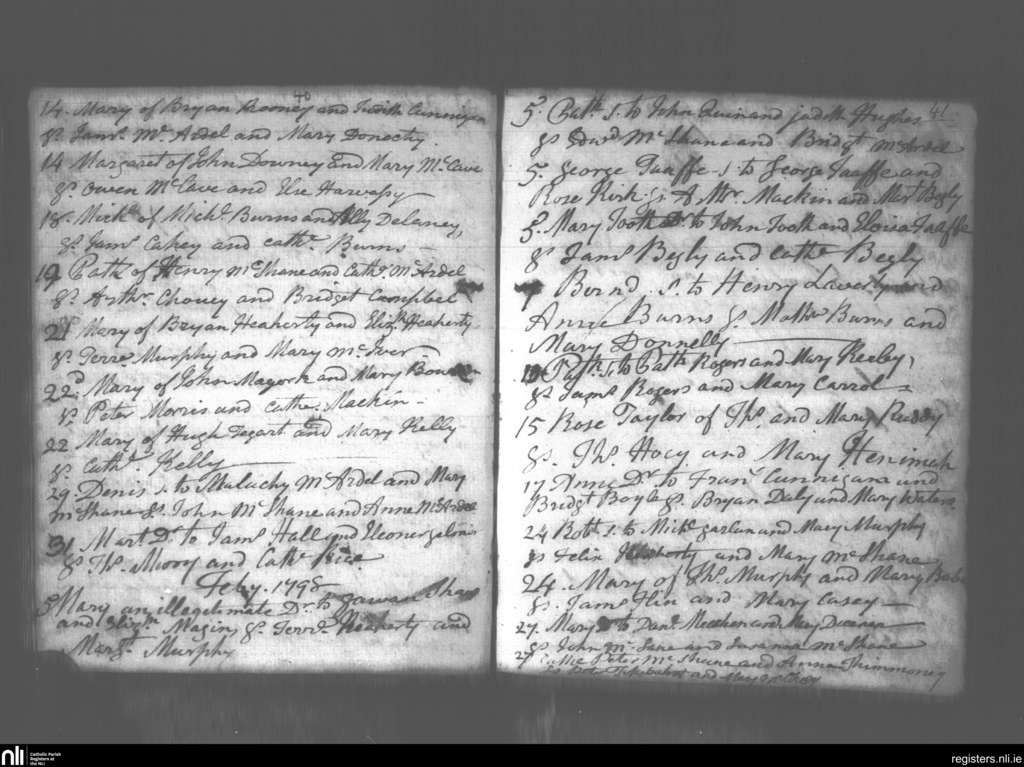 40
14. Mary of Bryan Rooney and Judith Cunnigan
Sp. Jams. Mc. Ardel and Mary Donecty.
14 Margaret of John Downey and Mary McCave
Sp. Owen McCave and Else
18. Mickl. of Michl. Burns and Ally Delaney,
Sp. Jams. Cahey and Cathe. Burns
19 Path. of Henry McShane and Cathe. McArdel
Sp. Arthr. Chouey and Bridget Campbel
21 Mary of Bryan Heaherty and Elizth. Heaherty
Sp. Terre. Murphy and Mary McIver
22d. Mary of John Magork and Mary
Sp. Peter Morris and Cathe. Mackin
22 Mary of Hugh Tegart and Mary Kelly
Sp. Cathe. Kelly
29 Denis s. to Malachy McArdel and Mary
McShane Sp. John McShane and Anne McArdel
31 Mart Dr. to Jams. Hall and Eleonor
Sp. Ths. Moory and Cathe. Rice
Feby. 1798
3 Mary an illegitimate Dr. to
and Magin, Sp. Terre. Heaherty and
Margt. Murphy
41.
5. Patk. s. to John Quin and Judith Hughes
Sp. Edwd. McShane and Bridgt McArdel
5. George Taaffe s. to George Taaffe and
Rose Kirk Sp. A Mr. Mackin and Mart Begly
5. Mary Tooth Dr. to John Tooth and Elonia Taaffe
Sp. Jams. Begly and Cathe. Begly
7 Bernd. s. to Henry Laverty and
Anne Burns Sp. Mathw Burns and
Mary Donnelly
10 Path. s. to Path. Rogers and Mary Keeley,
Sp. Jams. Rogers and Mary Carrol
15 Rose Taylor of Ths. and Mary Ruddy
Sp. Ths. Hoey and Mary Henimah
17 Anne Dr. to Frans. Cunnigane and
Bridgt Boyle Sp. Bryan Daly and Mary Waters.
24 Robt. s. to Michl. Garlan and Mary Murphy
Sp. Felix Heaherty and Mary McShane
24. Mary of Ths. Murphy and Mary
Sp. Jams. Flin and Mary Casey
27. Mary to Danl. Meehen and Mary
Sp. John McLane and Susanna McShane
27 Peter McShane and Anne Thimmony
and Mary
nli
Catholic Parish
Registers at
the NLI
registers.nli.ie